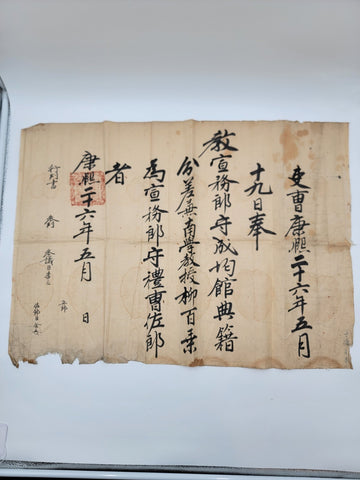 吏曹康熙二十六年五月
十九日奉
教宣務郎守成均館典籍
南學教授柳百乘
爲宣務郎守禮曹佐郎
者
康熙二十六年五月 日
行判書 參判 參議臣李
正郎
佐郎臣金